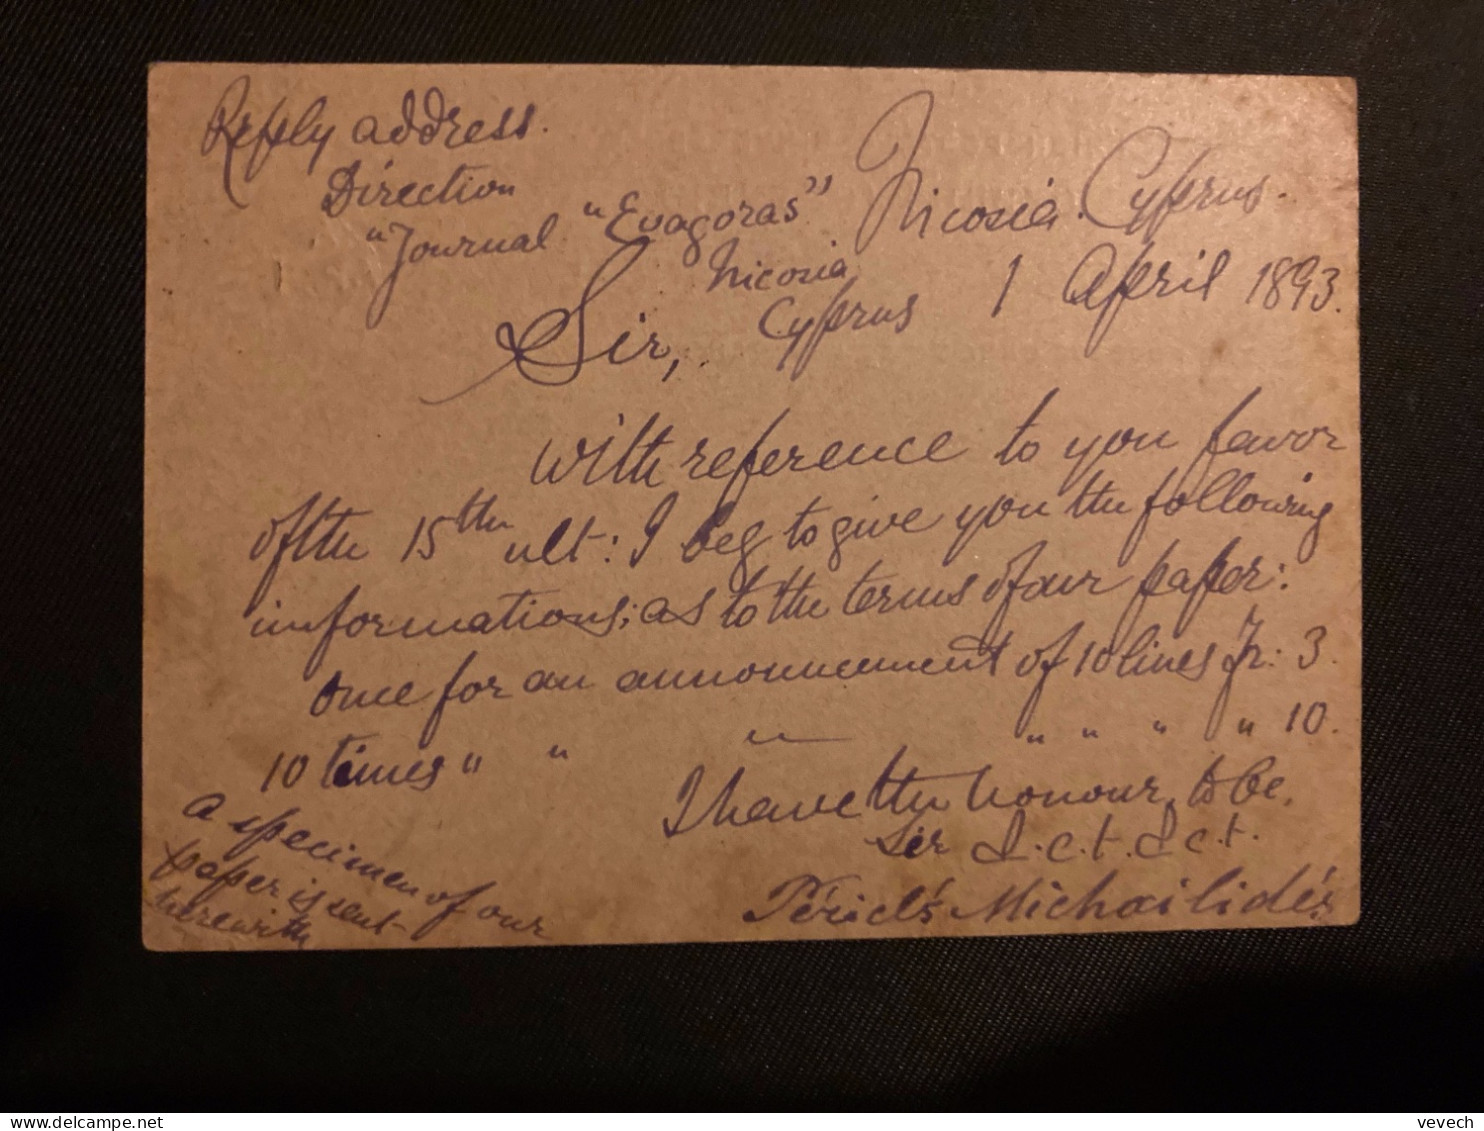 Reply address.
Direction
"Journal "Evagoras"
Nicosia
Cyprus
Nicosia Cyprus.
1 April 1893.
Sir,
With reference to you favor
of the 15th ult: I beg to give you the following
informations; as to the terms of our paper:
once for an announcement of 10 lines Fr: 3.
10 times " " " " " " " 10.
I have the honour to be.
Sir &.c.t. &.c.t.
Périclés Michailidés
A specimen of our
paper is sent
herewith
vevech
delcampe.net